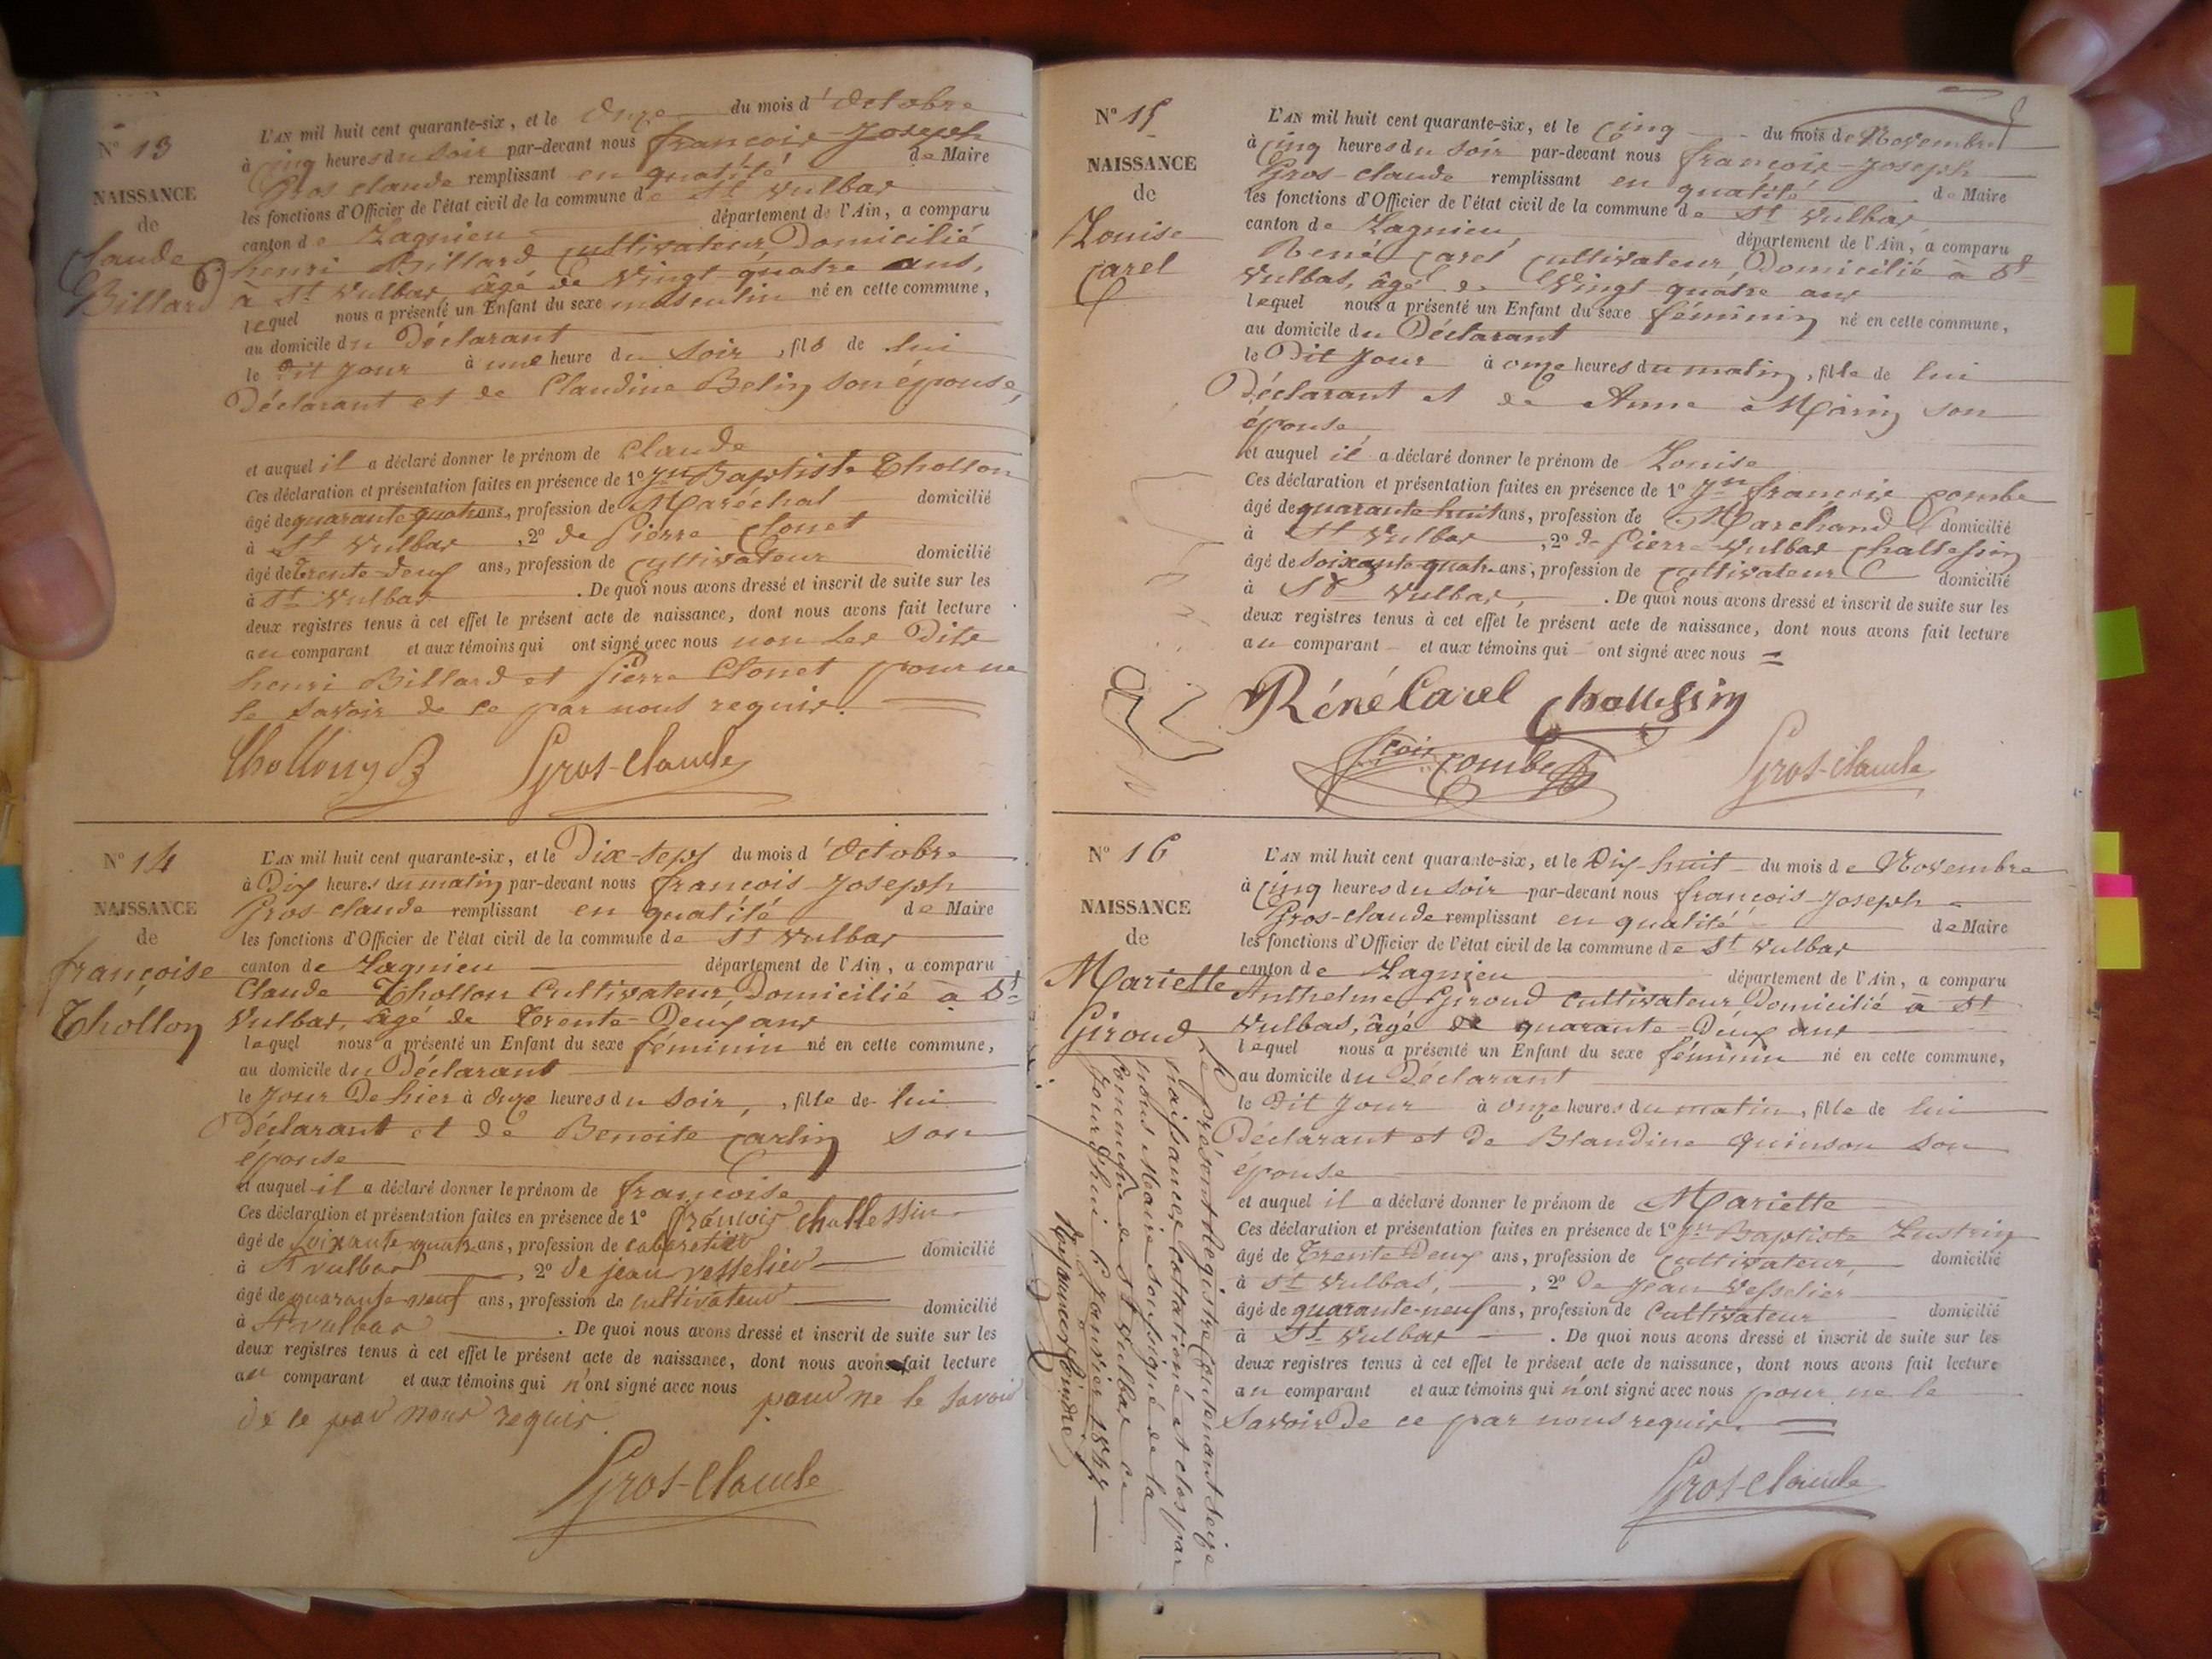 N° 13
NAISSANCE
de
Claude
Billard
L'AN mil huit cent quarante-six, et le Onze du mois d'Octobre
à Cinq heures du Soir par-devant nous françois-Joseph
Gros claude remplissant en qualité de Maire
les fonctions d'Officier de l'état civil de la commune de St Vulbas
canton de Lagnieu département de l'Ain, a comparu
henri Billard Cultivateur Domicilié
à St Vulbas âgé de Vingt-quatre ans,
lequel nous a présenté un Enfant du sexe masculin né en cette commune,
au domicile du Déclarant
le Dit Jour à une heure du Soir, fils de lui
Déclarant et de Claudine Belin son épouse,
et auquel il a déclaré donner le prénom de Claude
Ces déclaration et présentation faites en présence de 1° Jn Baptiste Thollon
âgé de quarante-quatre ans, profession de Maréchal domicilié
à St Vulbas, 2° de Pierre Clonet
âgé de Trente-Deux ans, profession de Cultivateur domicilié
à St Vulbas. De quoi nous avons dressé et inscrit de suite sur les
deux registres tenus à cet effet le présent acte de naissance, dont nous avons fait lecture
au comparant et aux témoins qui ont signé avec nous non les Dits
henri Billard et Pierre Clonet pour ne
le savoir de ce par nous requis.
Gros-Claude
N° 14
NAISSANCE
de
françoise
Thollon
L'AN mil huit cent quarante-six, et le Dix-Sept du mois d'Octobre
à Dix heures du matin par-devant nous françois-Joseph
Gros-claude remplissant en qualité de Maire
les fonctions d'Officier de l'état civil de la commune de St Vulbas
canton de Lagnieu département de l'Ain, a comparu
Claude Thollon Cultivateur Domicilié à St
Vulbas, âgé de Trente-Deux ans
lequel nous a présenté un Enfant du sexe féminin né en cette commune,
au domicile du Déclarant
le Jour De hier à Onze heures du Soir, fille de lui
Déclarant et de Benoite Carlin son
épouse
et auquel il a déclaré donner le prénom de françoise
Ces déclaration et présentation faites en présence de 1° françois challessin
âgé de soixante quatre ans, profession de cabaretier domicilié
à St vulbas, 2° de jean vesselier
âgé de quarante neuf ans, profession de cultivateur domicilié
à St vulbas. De quoi nous avons dressé et inscrit de suite sur les
deux registres tenus à cet effet le présent acte de naissance, dont nous avons fait lecture
au comparant et aux témoins qui n'ont signé avec nous pour ne le savoir
de ce par nous requis
Gros-Claude
N° 15
NAISSANCE
de
Louise
Carel
L'AN mil huit cent quarante-six, et le Cinq du mois de Novembre
à Cinq heures du Soir par-devant nous françois-Joseph
Gros-claude remplissant en qualité de Maire
les fonctions d'Officier de l'état civil de la commune de St Vulbas
canton de Lagnieu, département de l'Ain, a comparu
René Carel Cultivateur Domicilié à St
Vulbas, âgé de Vingt-quatre ans
lequel nous a présenté un Enfant du sexe féminin né en cette commune,
au domicile du Déclarant
le Dit Jour à onze heures du matin, fille de lui
Déclarant et de Anne Morin son
épouse
et auquel il a déclaré donner le prénom de Louise
Ces déclaration et présentation faites en présence de 1° Jn françois Combe
âgé de quarante huit ans, profession de Marchand domicilié
à St Vulbas, 2° de Pierre-Vulbas Challessin
âgé de soixante-quatre ans, profession de Cultivateur domicilié
à St Vulbas,. De quoi nous avons dressé et inscrit de suite sur les
deux registres tenus à cet effet le présent acte de naissance, dont nous avons fait lecture
au comparant et aux témoins qui ont signé avec nous =
Réné Carel Challessin
fcois Combe Gros-Claude
N° 16
NAISSANCE
de
Mariette
Giroud
L'AN mil huit cent quarante-six, et le Dix-huit du mois de Novembre
à Cinq heures du Soir par-devant nous françois-Joseph
Gros-claude remplissant en qualité de Maire
les fonctions d'Officier de l'état civil de la commune de St Vulbas
canton de Lagnieu département de l'Ain, a comparu
Anthelme Giroud Cultivateur Domicilié à St
Vulbas, âgé de quarante-Deux ans
lequel nous a présenté un Enfant du sexe féminin né en cette commune,
au domicile du Déclarant
le Dit Jour à Onze heures du matin, fille de lui
Déclarant et de Blandine Quinson son
épouse
et auquel il a déclaré donner le prénom de Mariette
Ces déclaration et présentation faites en présence de 1° Jn Baptiste Lustrin
âgé de Trente Deux ans, profession de Cultivateur, domicilié
à St Vulbas,, 2° de Jean Vesselier
âgé de quarante-neuf ans, profession de Cultivateur domicilié
à St Vulbas. De quoi nous avons dressé et inscrit de suite sur les
deux registres tenus à cet effet le présent acte de naissance, dont nous avons fait lecture
au comparant et aux témoins qui n'ont signé avec nous pour ne le
savoir De ce par nous requis.
Gros-Claude
Le présent Registre Contenant Seize
naissances Cottationné et clos par
nous Maire soussigné de la
Commune de St Vulbas ce
Jourd'hui 1er Janvier 1847